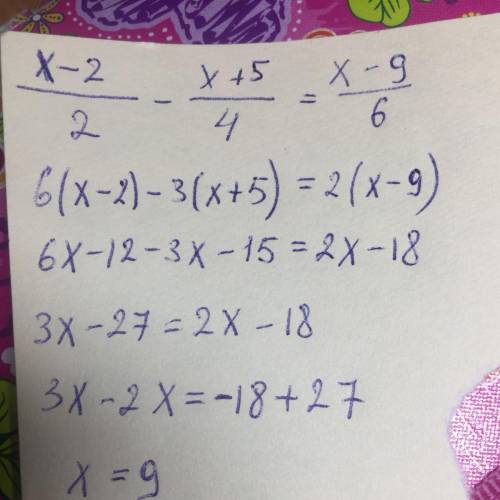 x-2/2 - x+5/4 = x-9/6
6(x-2)-3(x+5)=2(x-9)
6x-12-3x-15=2x-18
3x-27=2x-18
3x-2x=-18+27
x=9